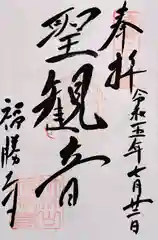 奉拝
令和五年七月廿二日
聖観音
福勝寺